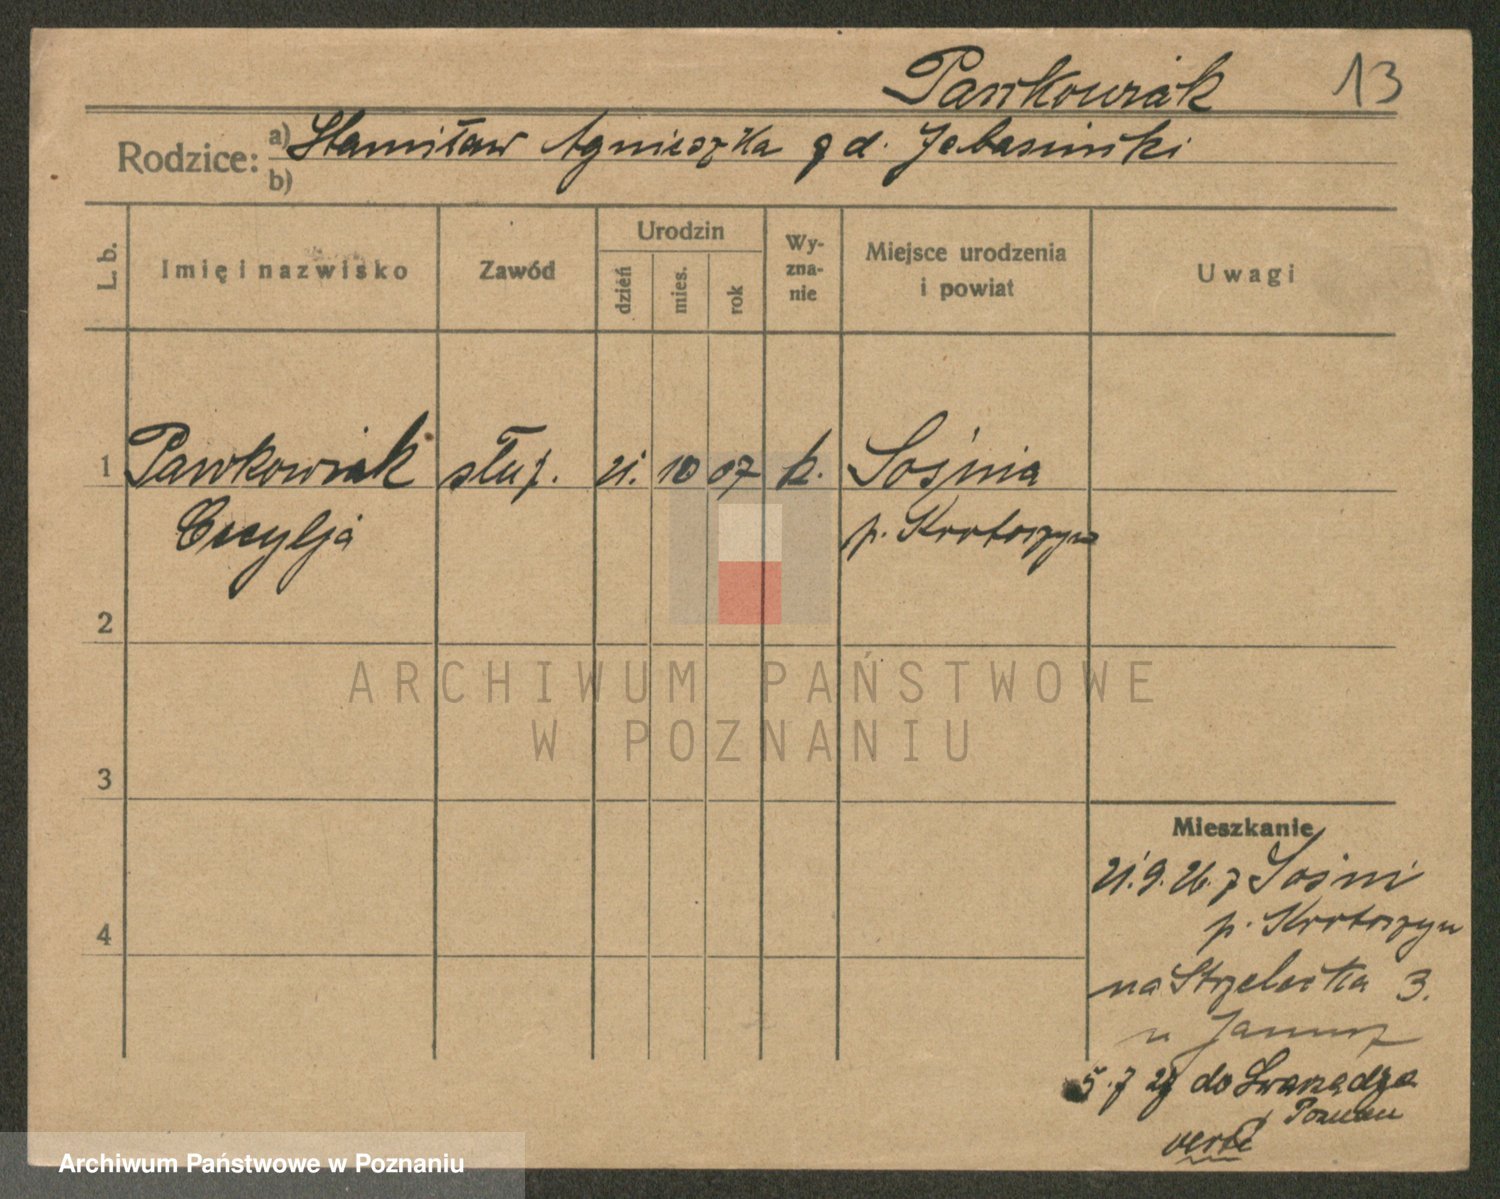 Pawkowiak 13
Rodzice: a) Stanisław Agnieszka z d.
b)
L. b. Imię i nazwisko Zawód Urodzin dzień mies. rok Wy-zna-nie Miejsce urodzenia i powiat Uwagi
1 Pawkowiak służ. 21. 10 07 k. Sośnia
Cecylja p. Krotoszyn
2
3
4
Mieszkanie
21.9.26. z Sośni
p. Krotoszyn
na Strzelecka 3.
u Janusz
5.7 27 do Swarzędza
Poznań
verte
ARCHIWUM PAŃSTWOWE
W POZNANIU
Archiwum Państwowe w Poznaniu